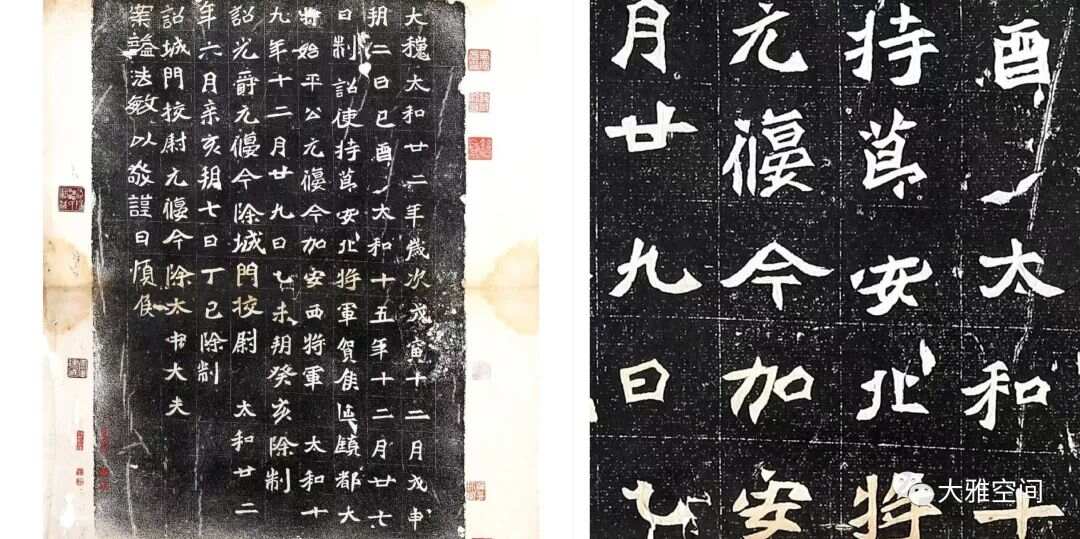 大魏太和廿二年歲次戊寅十二月戊申
朔二日己酉太和十五年十二月廿七
日制詔使持節安北將軍賀侯延鎮都大
將始平公元偃今加安西將軍 太和十
九年十二月廿九日乙未朔癸亥除制
詔光爵元偃今除城門校尉 太和廿二
年六月辛亥朔七日丁巳除制
詔城門校尉元偃今除太中大夫
案謚法敏以敬謹曰頃侯
酉太和十
持節安北將
元偃今加安
月廿九日乙
大雅空间